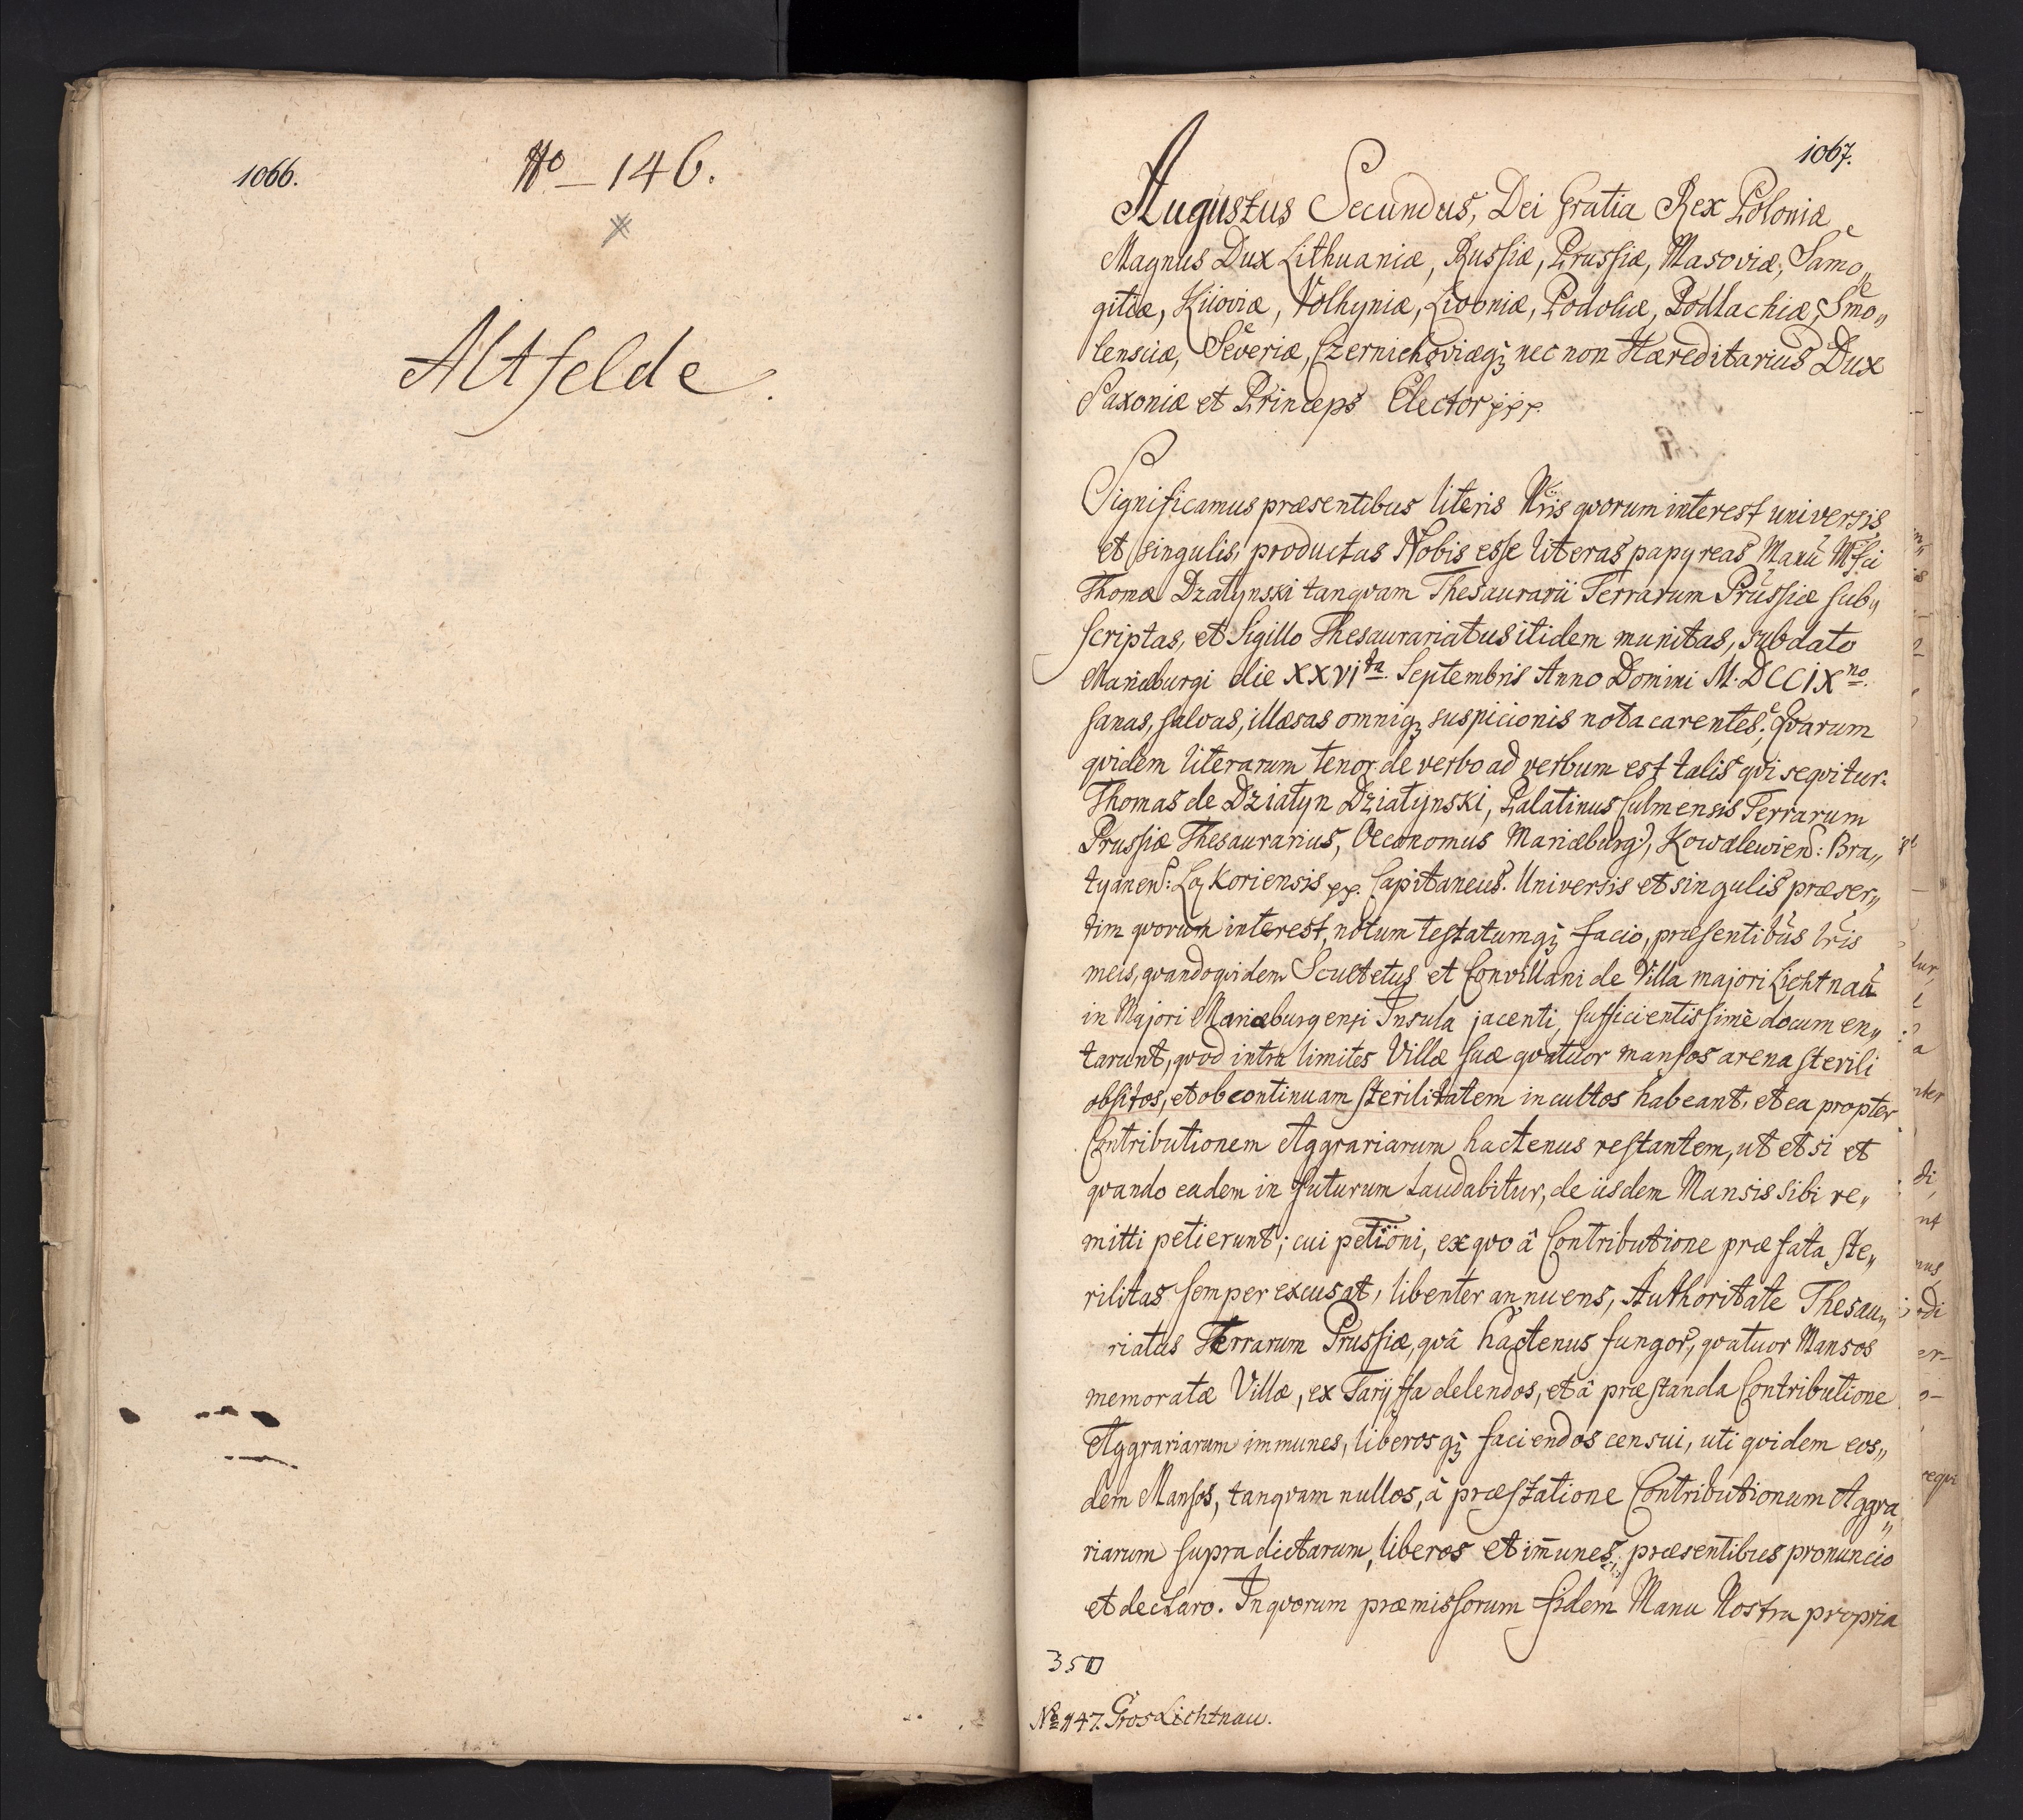 1066.
No – 146.
Altfelde.
1067.
Augustus Secundus, Dei Gratia Rex Poloniæ
Magnus Dux Lithuaniæ, Russiæ, Prussiæ, Masoviæ, Samo„
gitiæ, Kijoviæ, Volhyniæ, Livoniæ, Podoliæ, Podlachiæ, Smo„
lensciæ, Severiæ, Czernichoviæqȝ nec non Hæreditarius Dux
Saxoniæ et Princeps Elector ppp.
Significamus præsentibus literis Nris qvorum interest universis
et singulis, productas Nobis esse literas papyreas Manu Mfci
Thomæ Dzalynski tanqvam Thesaurarii Terrarum Prussiæ sub„
scriptas, et Sigillo Thesaurariatus itidem munitas, sub dato
Mariæburgi die XXVIta Septembris Anno Domini M.DCCIXno.
sanas, salvas, illæsas omniqȝ suspicionis nota carentes; Qvarum
qvidem literarum tenor de verbo ad verbum est talis qvi seqvitur.
Thomas de Dzialyn Dzialynski, Palatinus Culmensis Terrarum
Prussiæ Thesaurarius, Oeconomus Mariæburg:, Kowalewien: Bra„
tyanen: Loykoriensis pp. Capitaneus. Universis et singulis præser„
tim qvorum interest, notum testatumqȝ facio, præsentibus lris
meis, qvandoqvidem Scultetus et Convillani de Villa majori Lichtnau
in Majori Mariæburgensi Insula jacenti, sufficientissimè documen„
tarunt, qvod intra limites Villæ suæ qvatuor mansos arena sterili
obsitos, et ob continuam sterilitatem incultos habeant, et ea propter
Contributionem Aggrariarum hactenus restantem, ut et si et
qvando eadem in futurum Laudabitur, de iisdem Mansis sibi re„
mitti petierunt; cui petioni, ex qvo â Contributione præfata ste„
rilitas semper excusat, libenter annuens, Authoritate Thesau„
riatus Terrarum Prussiæ, qvâ hactenus fungor, qvatuor Mansos
memoratæ Villæ, ex Tariffa delendos, et â præstanda Contributione
Aggrariarum immunes, liberosqȝ faciendos censui, uti qvidem eos„
dem Mansos, tanqvam nullos, â præstatione Contributionum Aggra„
riarum supra dictarum, liberos et imunes, præsentibus pronuncio
et declaro. In qvorum præmissorum fidem Manu Nostra propria
No 147. Gros Lichtnau.